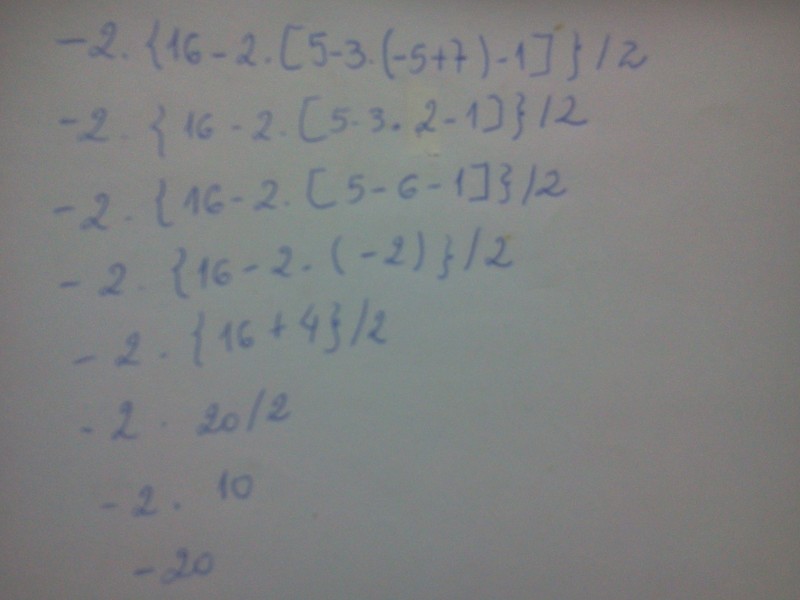 -2.{16-2.[5-3.(-5+7)-1]}/2
-2.{16-2.[5-3.2-1]}/2
-2.{16-2.[5-6-1]}/2
-2.{16-2.(-2)}/2
-2.{16+4}/2
-2.20/2
-2.10
-20